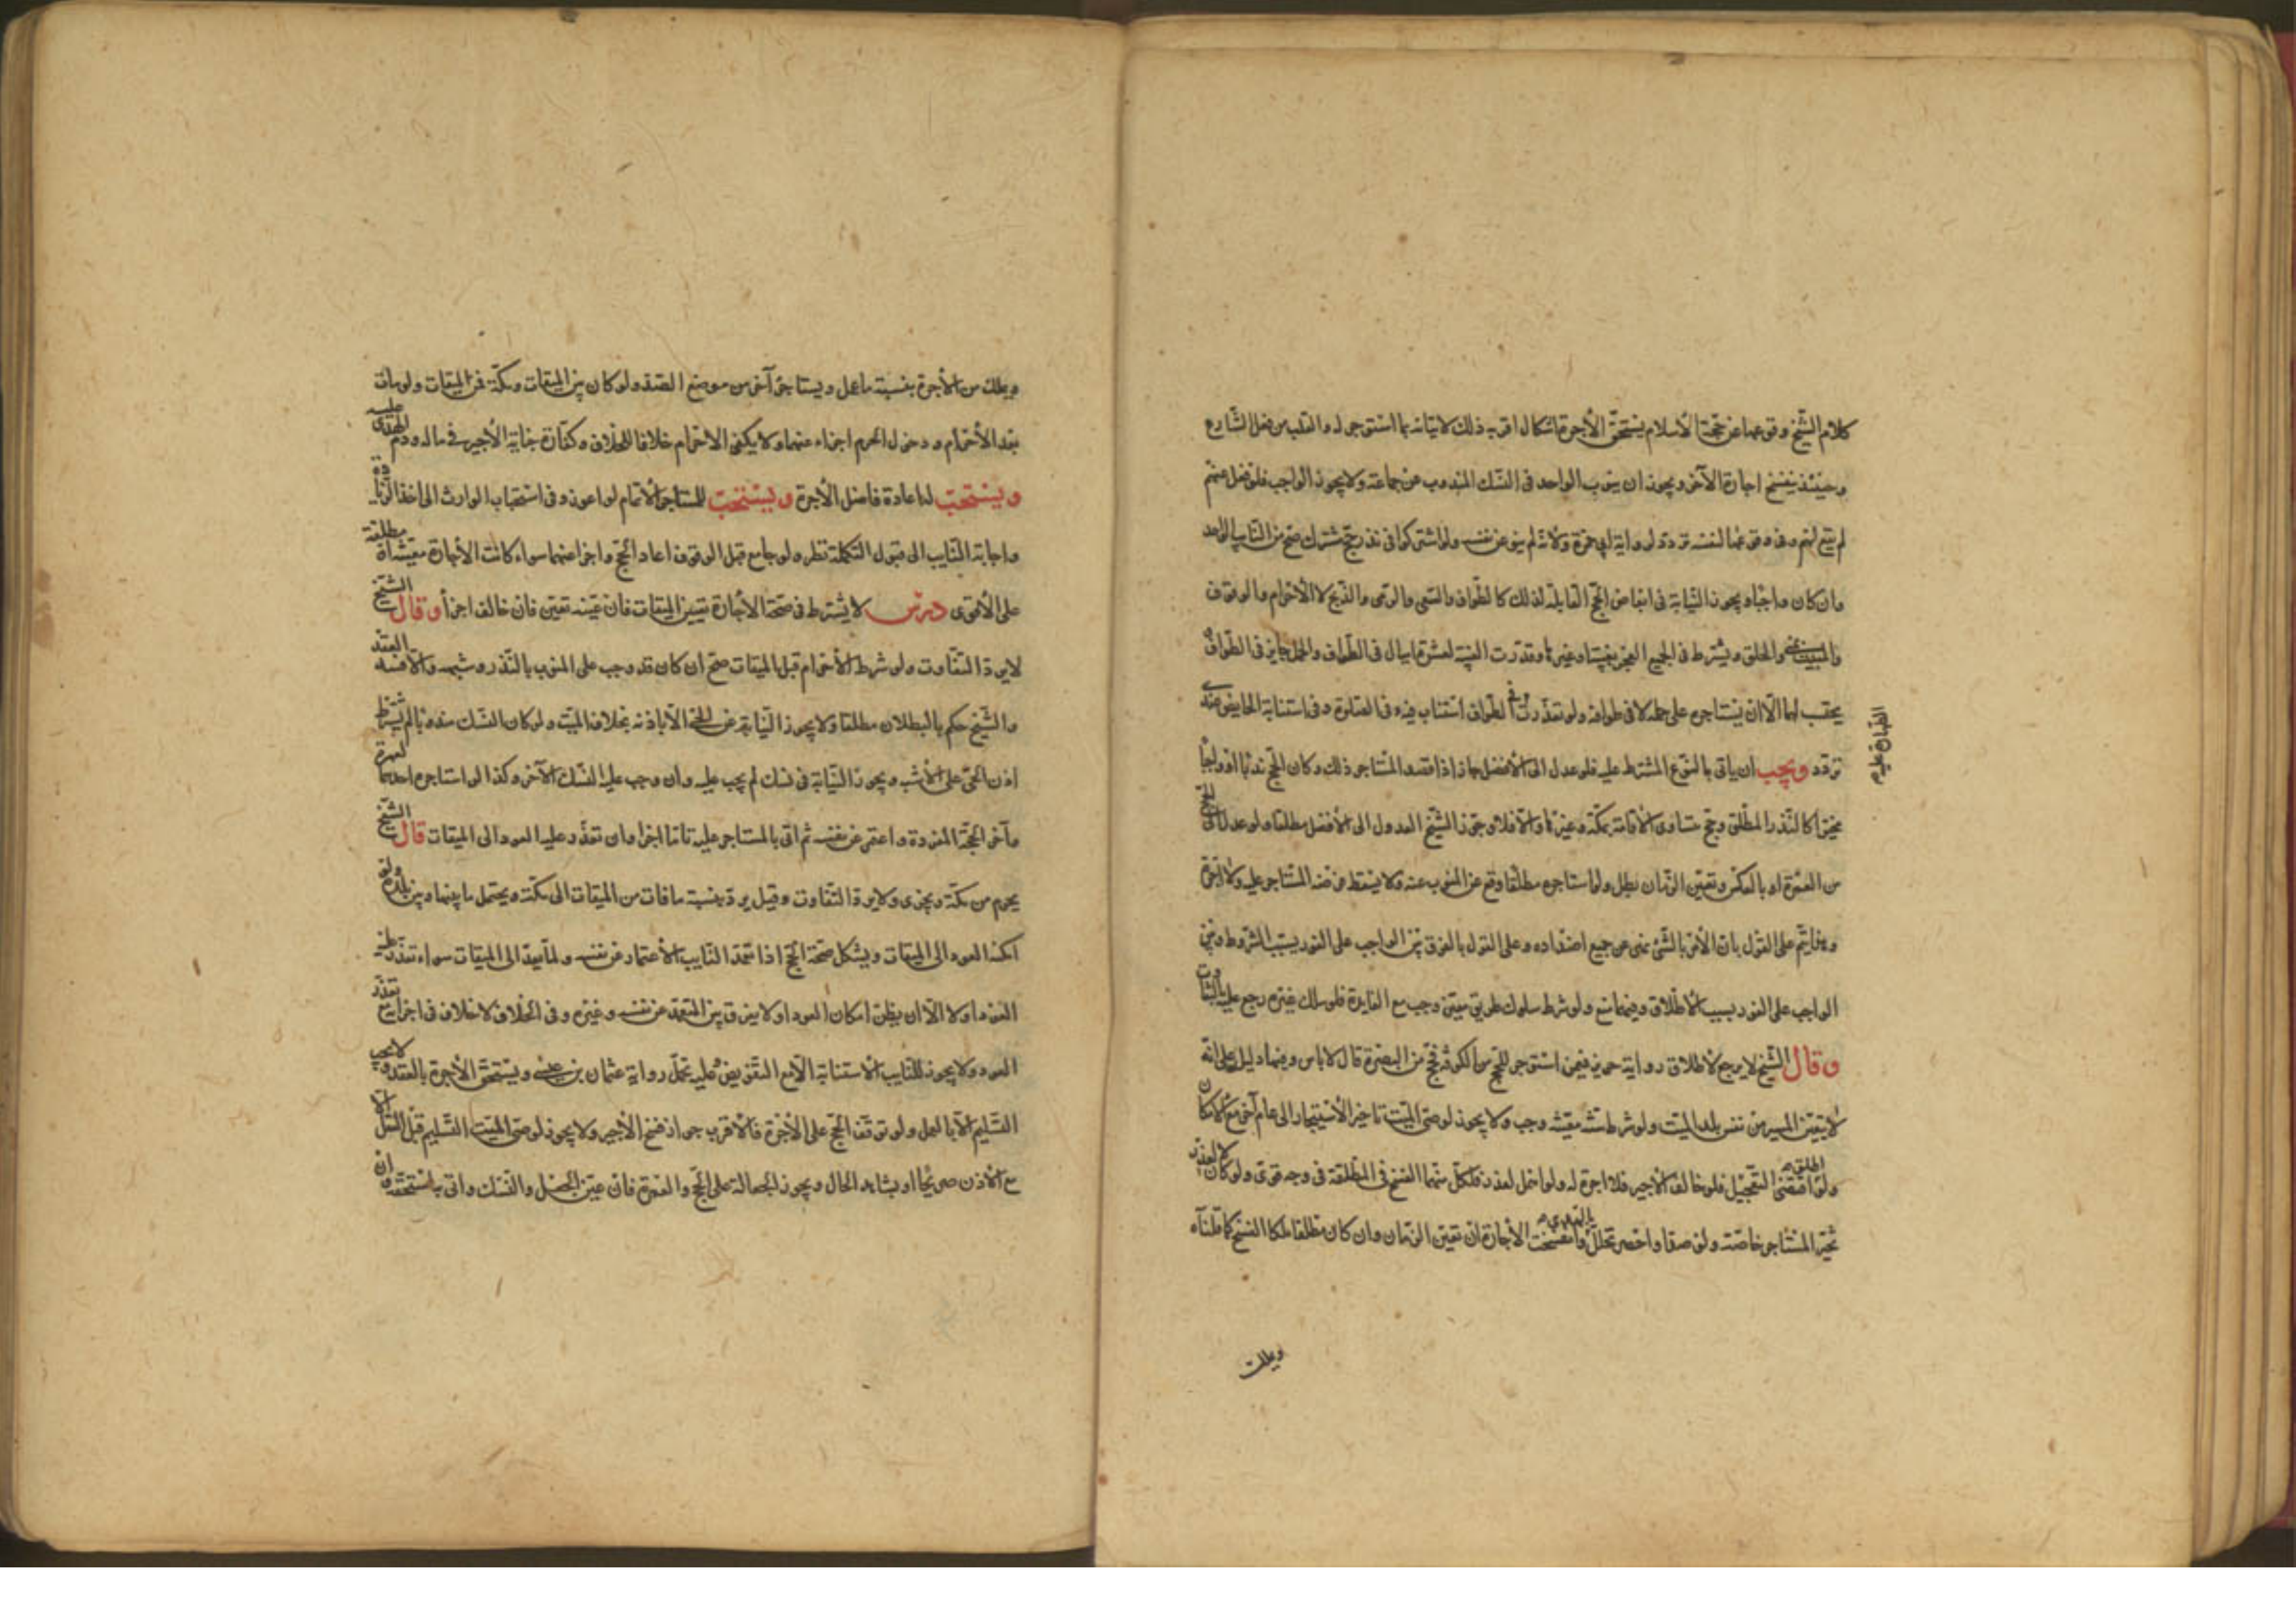 كلام الشيخ وقوعها عن حجة الاسلام يستحق الأجرة اشكال اقربه ذلك لاتيانه بما استوجر له والقلب من فعل الشارع
وحينئذ ينفسخ اجارة الآخر ويجوز ان ينوب الواحد فى النسك المندوب عن جماعة ولا يجوز الواجب فلو فعل عنهم
لم يقع لهم وفى وقوعها لنفسه تردد لرواية ابى حمزة ولانه لم ينو عن نفسه ولو اشتركوا فى نذر حج مشترك صح من النايب الواحد
وان كان واجبا ويجوز النيابة فى ابعاض الحج القابلة لذلك كالطواف والسعى والرمى والذبح لا الاحرام والوقوف
والمبيت بمنى والحلق ويشترط فى الجميع العجز بغيبته وغيرها وقدرت الغيبة بعشرة اميال فى الطواف والحمل جايز فى الطواف
يحتسب لهما الا ان يستاجره على حمله لا فى طوافه ولو تعذرت الطواف استناب فيه وفى الصلوة وفى استنابة الحايض عندى
تردد ويجب ان ياتى بالنوع المشترط عليه فلو عدل الى الافضل جاز اذا قصد المستاجر ذلك وكان الحج ندبا او واجبا
مخيرا كالنذر المطلق وحج متساوى الاقامة بمكة وغيرها والا فلا وجوز الشيخ العدول الى الافضل مطلقا ولو عدل الى الحج
من العمرة او بالعكس وتعين الزمان بطل ولو استاجره مطلقا وقع عن المنوب عنه ولا يسقط فرضه المستاجر عليه ولا اجرة
وهذا يتم على القول بان الأمر بالشئ نهى عن جميع اضداده وعلى القول بالفرق بين الواجب على الفور بسبب الشروط وبين
الواجب على الفور بسبب الاطلاق وفيهما منع ولو شرط سلوك طريق معين وجب مع الفايدة فلو سلك غيره رجع عليه بالتفاوت
وقال الشيخ لا يرجع لاطلاق رواية حريز فيمن استوجر للحج من الكوفة فحج من البصرة قال لا باس وفيها دليل على انه
لا يتعين المسير من نفس بلد الميت ولو شرط سنة معينة وجب ولا يجوز لوصى الميت تاخير الاستيجار الى عام آخر مع الامكان
اطلقه
ولو اقتضى التعجيل فلو خالف الاجير فلا اجرة له ولو اهمل لعذر فلكل منهما الفسخ فى المطلقة فى وجه قوى ولو كان لا لعذر
بالهدى
تخير المستاجر خاصة ولو صد او احصر تحلل وانفسخت الأجارة ان تعين الزمان وان كان مطلقا ملكا الفسخ كما قلناه
ويملك
ويملك من الأجرة بنسبة ما عمل ويستاجر آخر من موضع الصد ولو كان بين الميقات ومكة فمن الميقات ولو مات
بعد الأحرام ودخول الحرم اجزاء عنهما ولا يكفى الاحرام خلافا للخلاف وكفارة جناية الأجير فى ماله ودم الهدى عليه
ويستحب له اعادة فاضل الأجرة ويستحب للمستاجر الاتمام لو اعوز وفى استحباب الوارث الى اخذ الزيادة
واجابة النايب الى قبول التكملة نظر ولو جامع قبل الوقوف اعاد الحج واجزا عنهما سواء كانت الأجارة معينة او مطلقة
على الأقوى درس لا يشترط فى صحة الاجارة تعيين الميقات فان عينه تعين فان خالف اجزأ وقال الشيخ
لا يرد التفاوت ولو شرط الأحرام قبل الميقات صح ان كان قد وجب على المنوب بالنذر وشبهه والا فسد العقد
والشيخ حكم بالبطلان مطلقا ولا يجوز النيابة عن الحى الا باذنه بخلاف الميت ولو كان النسك مندوبا لم يشترط
اذن الحى على الأشبه ويجوز النيابة فى نسك لم يجب عليه وان وجب عليه النسك الآخر وكذا لو استاجره احدهما لعمرة
وآخر لحجة المفردة واعتمر عن نفسه ثم اتى بالمستاجر عليه تاما اجزا وان تعذر عليه العود الى الميقات قال الشيخ
يحرم من مكة ويجزى ولا يرد التفاوت وقيل يرد بنسبة ما فات من الميقات الى مكة ويحتمل ما بينها وبين بلده ولو
امكنه العود الى الميقات ويشكل صحة الحج اذا تعمد النايب الاعتمار عن نفسه ولما يعد الى الميقات سواء تعذر عليه
العود او لا الا ان يظن امكان العود او لا يفرق بين المتعمد عن نفسه وغيره وفى الخلاف لا خلاف فى اجزايه مع تعذر
العود ولا يجوز للنايب الاستنابة الا مع التفويض وعليه تحمل رواية عثمان بن عيسى ويستحق الأجرة بالعقد ولا يجب
التسليم الا بالعمل ولو توقف الحج على الأجرة فالأقرب جواز فسخ الأجير ولا يجوز لوصى الميت التسليم قبل الفعل الا
مع الاذن صريحا او بشاهد الحال ويجوز الجعالة على الحج والعمرة فان عين الجعل والنسك واتى به استحقه وان